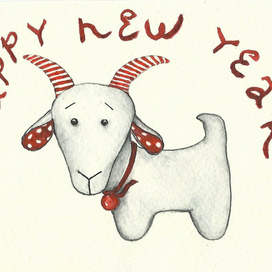 APPY nEW YEAR